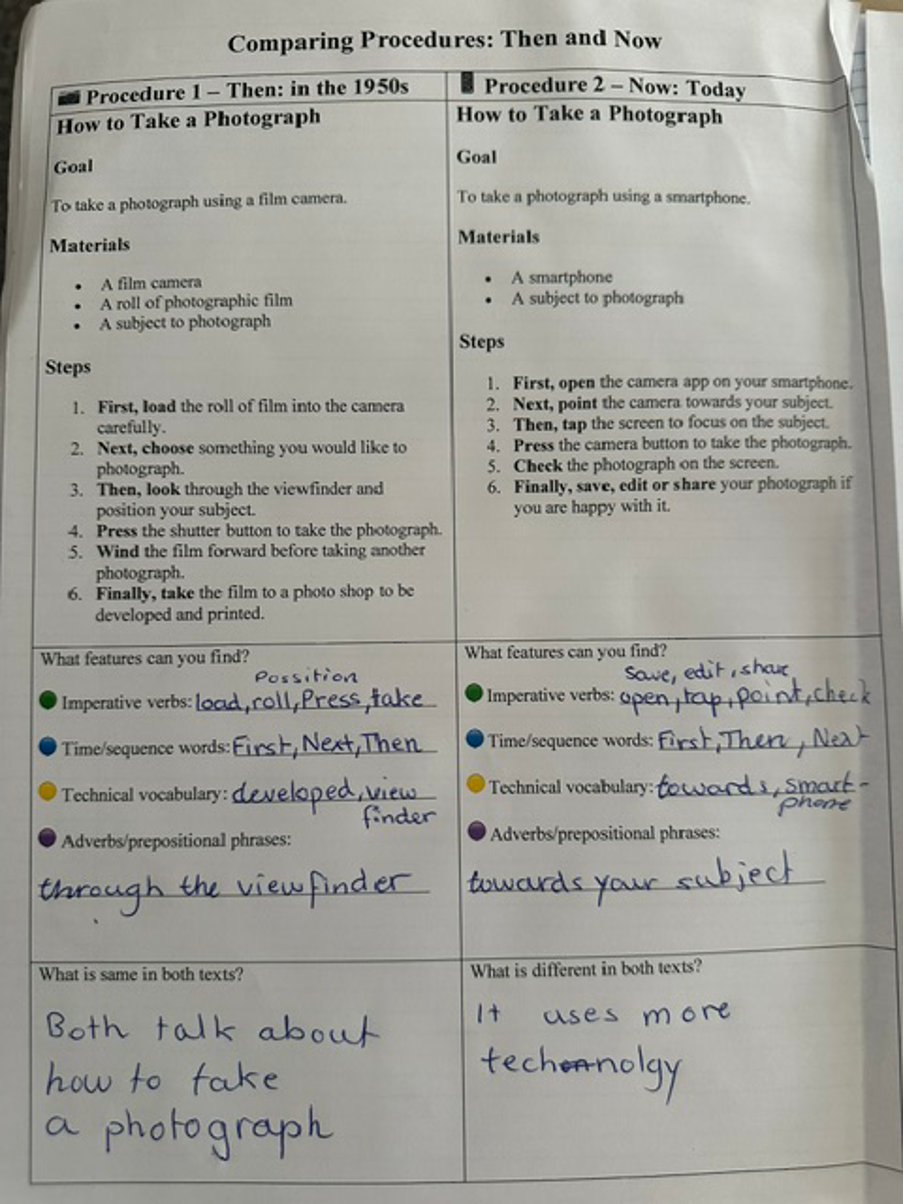 Comparing Procedures: Then and Now
Procedure 1 – Then: in the 1950s
How to Take a Photograph
Goal
To take a photograph using a film camera.
Materials
• A film camera
• A roll of photographic film
• A subject to photograph
Steps
1. First, load the roll of film into the camera
carefully.
2. Next, choose something you would like to
photograph.
3. Then, look through the viewfinder and
position your subject.
4. Press the shutter button to take the photograph.
5. Wind the film forward before taking another
photograph.
6. Finally, take the film to a photo shop to be
developed and printed.
Procedure 2 – Now: Today
How to Take a Photograph
Goal
To take a photograph using a smartphone.
Materials
• A smartphone
• A subject to photograph
Steps
1. First, open the camera app on your smartphone.
2. Next, point the camera towards your subject.
3. Then, tap the screen to focus on the subject.
4. Press the camera button to take the photograph.
5. Check the photograph on the screen.
6. Finally, save, edit or share your photograph if
you are happy with it.
What features can you find?
Possition
Imperative verbs: load, roll, Press, take
Time/sequence words: First, Next, Then
Technical vocabulary: developed, view
finder
Adverbs/prepositional phrases:
through the viewfinder
What features can you find?
Save, edit, share
Imperative verbs: open, tap, point, check
Time/sequence words: First, Then, Next
Technical vocabulary: towards, smart-
phone
Adverbs/prepositional phrases:
towards your subject
What is same in both texts?
Both talk about
how to take
a photograph
What is different in both texts?
It uses more
technolgy